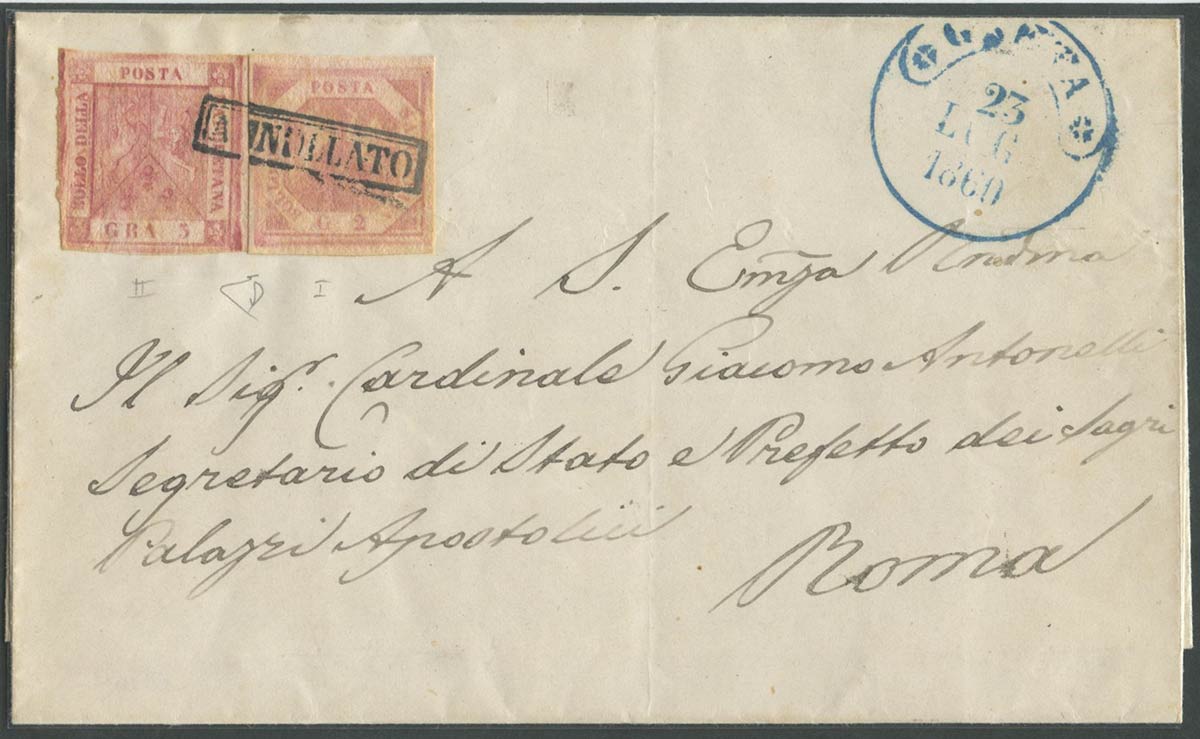 POSTA
BOLLO DELLA
GRA 5
POSTA
G 2
ANNULLATO
GAETA
23
LUG
1860
II
I
A S. Emza
Il Sigr. Cardinale Giacomo Antonelli
Segretario di Stato e Prefetto dei Sagri
Palazzi Apostolici
Roma